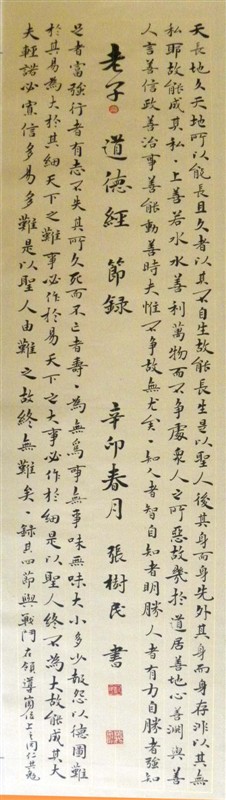 天長地久天地所以能長且久者以其不自生故能長生是以聖人後其身而身先外其身而身存非以其無
私耶故能成其私·上善若水水善利萬物而不爭處眾人之所惡故幾於道居善地心善淵與善
人言善信政善治事善能動善時夫惟不爭故無尤矣·知人者智自知者明勝人者有力自勝者強知
老子 道德經 節錄 辛卯春月 張樹民 書
足者富強行者有志不失其所久死而不亡者壽·為無為事無事味無味大小多少報怨以德圖難
於其易為大於其細天下之難事必作於易天下之大事必作於細是以聖人終不為大故能成其大
夫輕諾必寡信多易多難是以聖人由難之故終無難矣·錄其四節與戰鬥在領導崗位上之同仁共勉